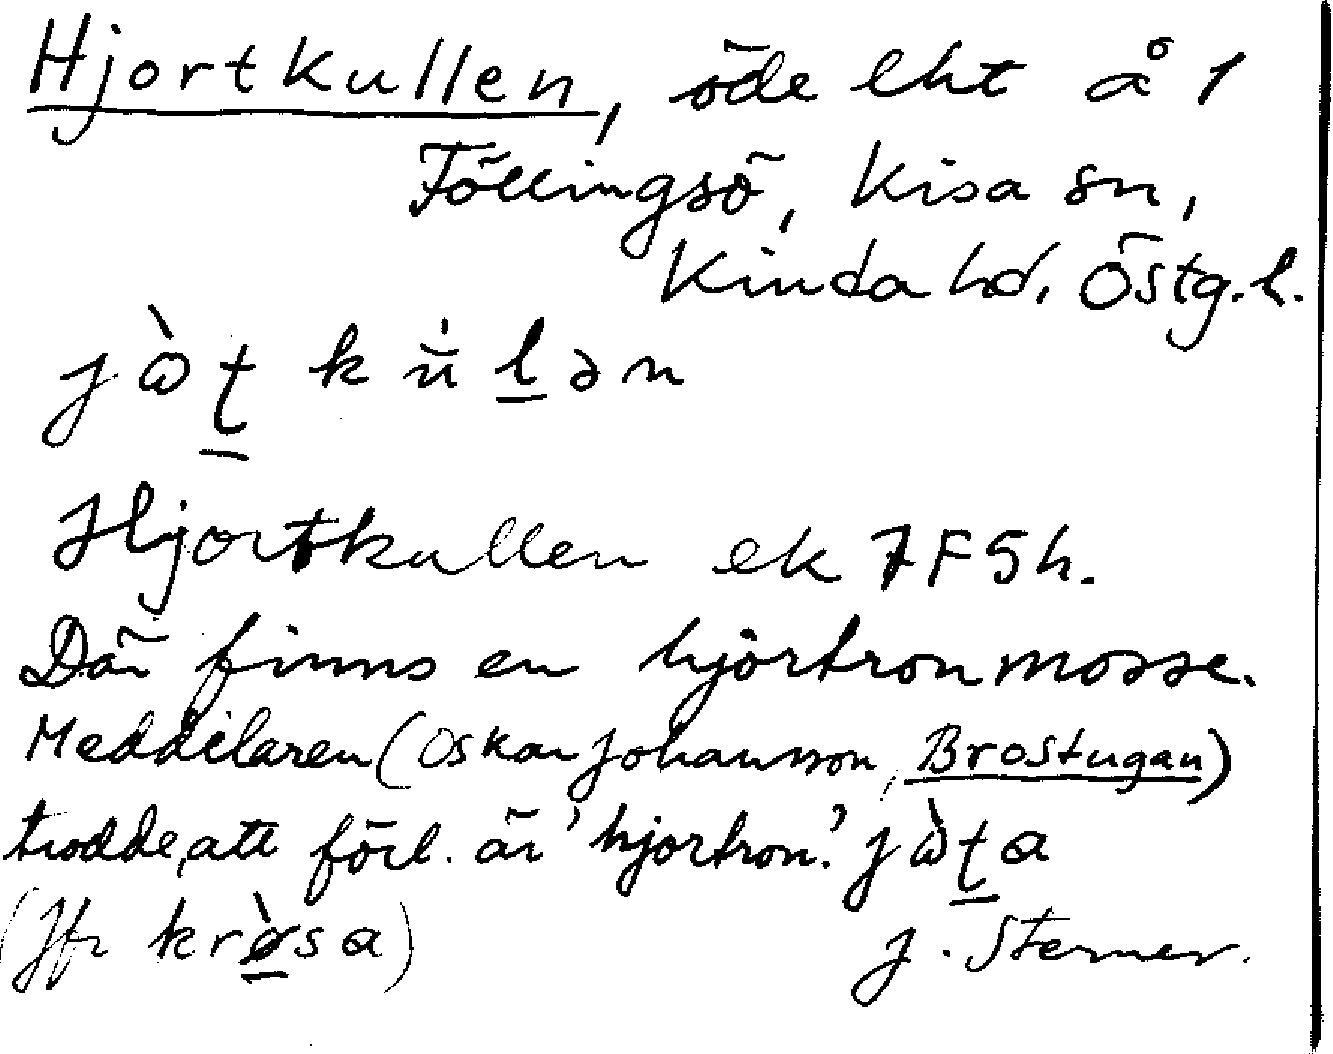 Hjortkullen, öde lht å 1
Föllingsö, Kisa sn,
Kinda hd, Östg.l.
Hjortkullen ek 7F5h.
Där finns en hjortronmosse.
Meddelaren (Oskar Johansson, Brostugan)
trodde, att förl. är 'hjortron'.
(Jfr krɵ̀sa) J. Sterner.